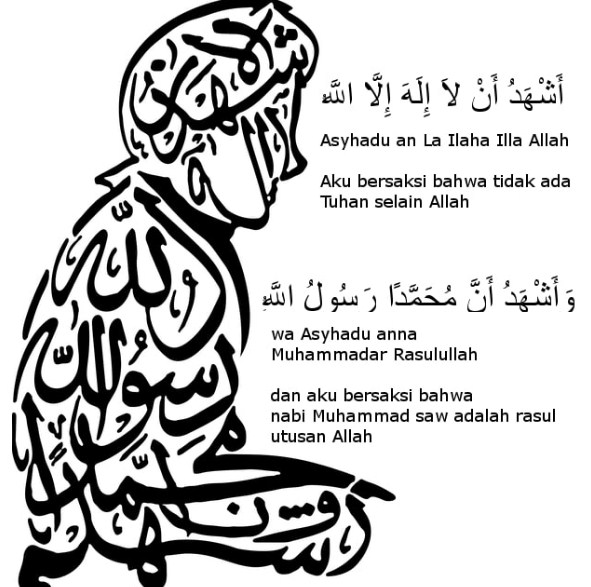 أَشْهَدُ أَنْ لاَ إِلَهَ إِلَّا اللَّهُ
Asyhadu an La Ilaha Illa Allah
Aku bersaksi bahwa tidak ada
Tuhan selain Allah
وَأَشْهَدُ أَنَّ مُحَمَّدًا رَسُولُ اللَّهِ
wa Asyhadu anna
Muhammadar Rasulullah
dan aku bersaksi bahwa
nabi Muhammad saw adalah rasul
utusan Allah